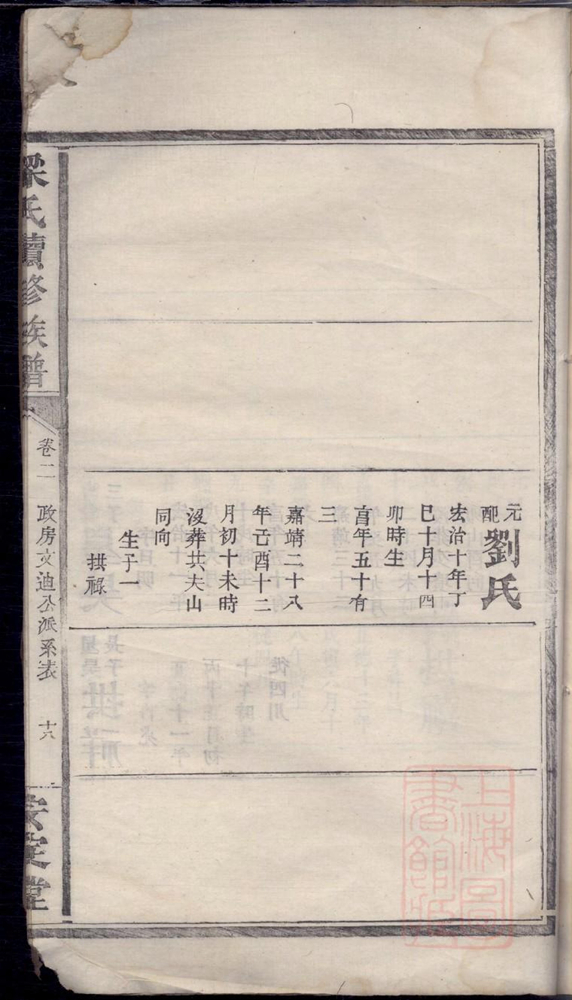 元配劉氏
宏治十年丁
巳十月十四
卯時生
享年五十有
三
嘉靖二十八
年己酉十二
月初十未時
沒葬其夫山
同向
生子一
拱祿
梁氏續修族譜
卷二
政房文迪公派系表
十六
安定堂
上海圖書館藏